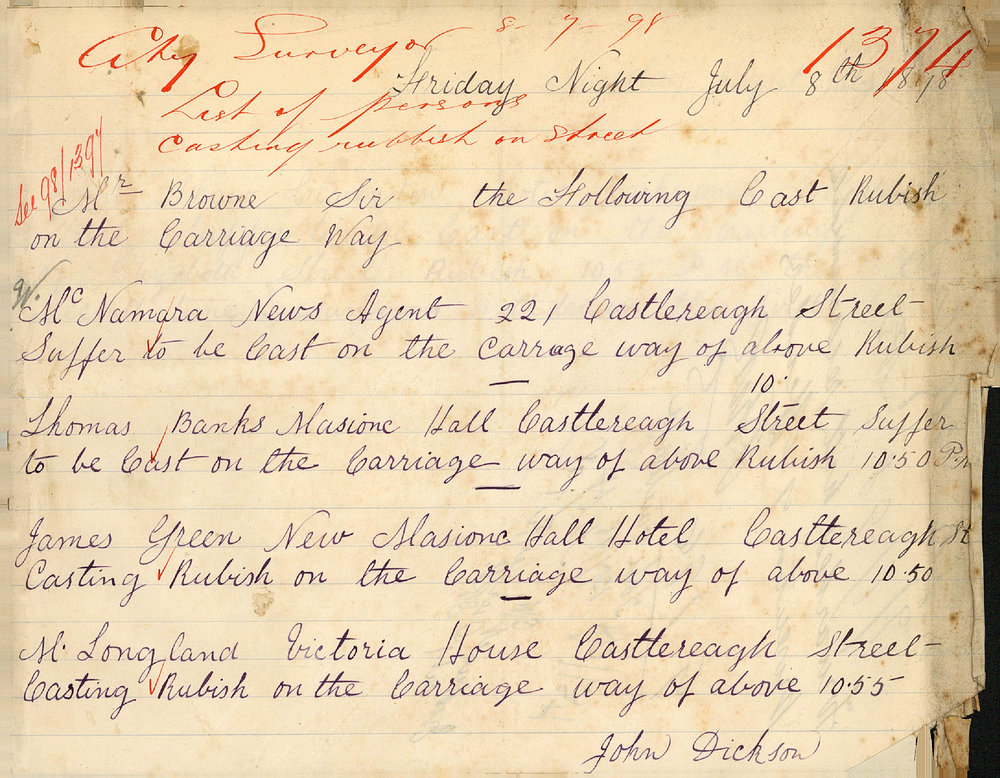 City Surveyor 8-7-98
1374
Friday Night July 8th 1898
List of persons
Casting rubbish on Street
See 98/1397
Mr Browne Sir the Following Cast Rubish
on the Carriage Way
W.
Mc Namara News Agent 221 Castlereagh Street
Suffer to be Cast on the Carrage way of above Rubish
10.
Thomas Banks Masionc Hall Castlereagh Street Suffer
to be Cast on the Carriage way of above Rubish 10.50 P.m
James Green New Masionc Hall Hotel Casttereagh St
Casting Rubish on the Carriage way of above 10.50
M. Longland Victoria House Casttereagh Street
Casting Rubish on the Carriage way of above 10.55
John Dickson